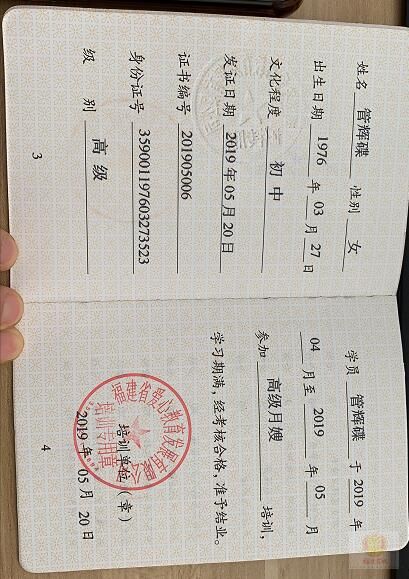 姓名 管辉碟 性别 女
出生日期 1976 年 03 月 27 日
文化程度 初中
发证日期 2019 年 05 月 20 日
证书编号 201905006
身份证号 359001197603273523
级 别 高级
3
学员 管辉碟 于 2019 年
04 月至 2019 年 05 月
参加 高级月嫂 培训,
学习期满,经考核合格,准予结业。
福建省爱心教育发展
培训专用章
培训单位(章)
2019 年 05 月 20 日
4